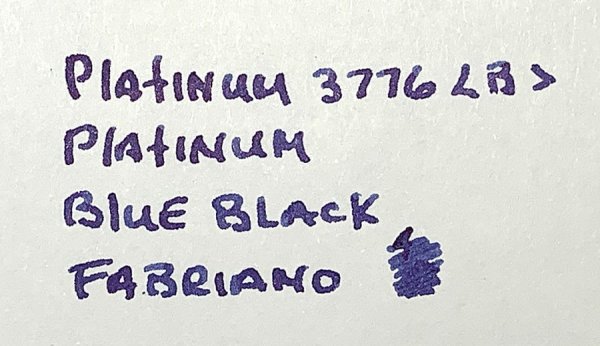 PLATINUM 3776 <B>
PLATINUM
BLUE BLACK
FABRIANO